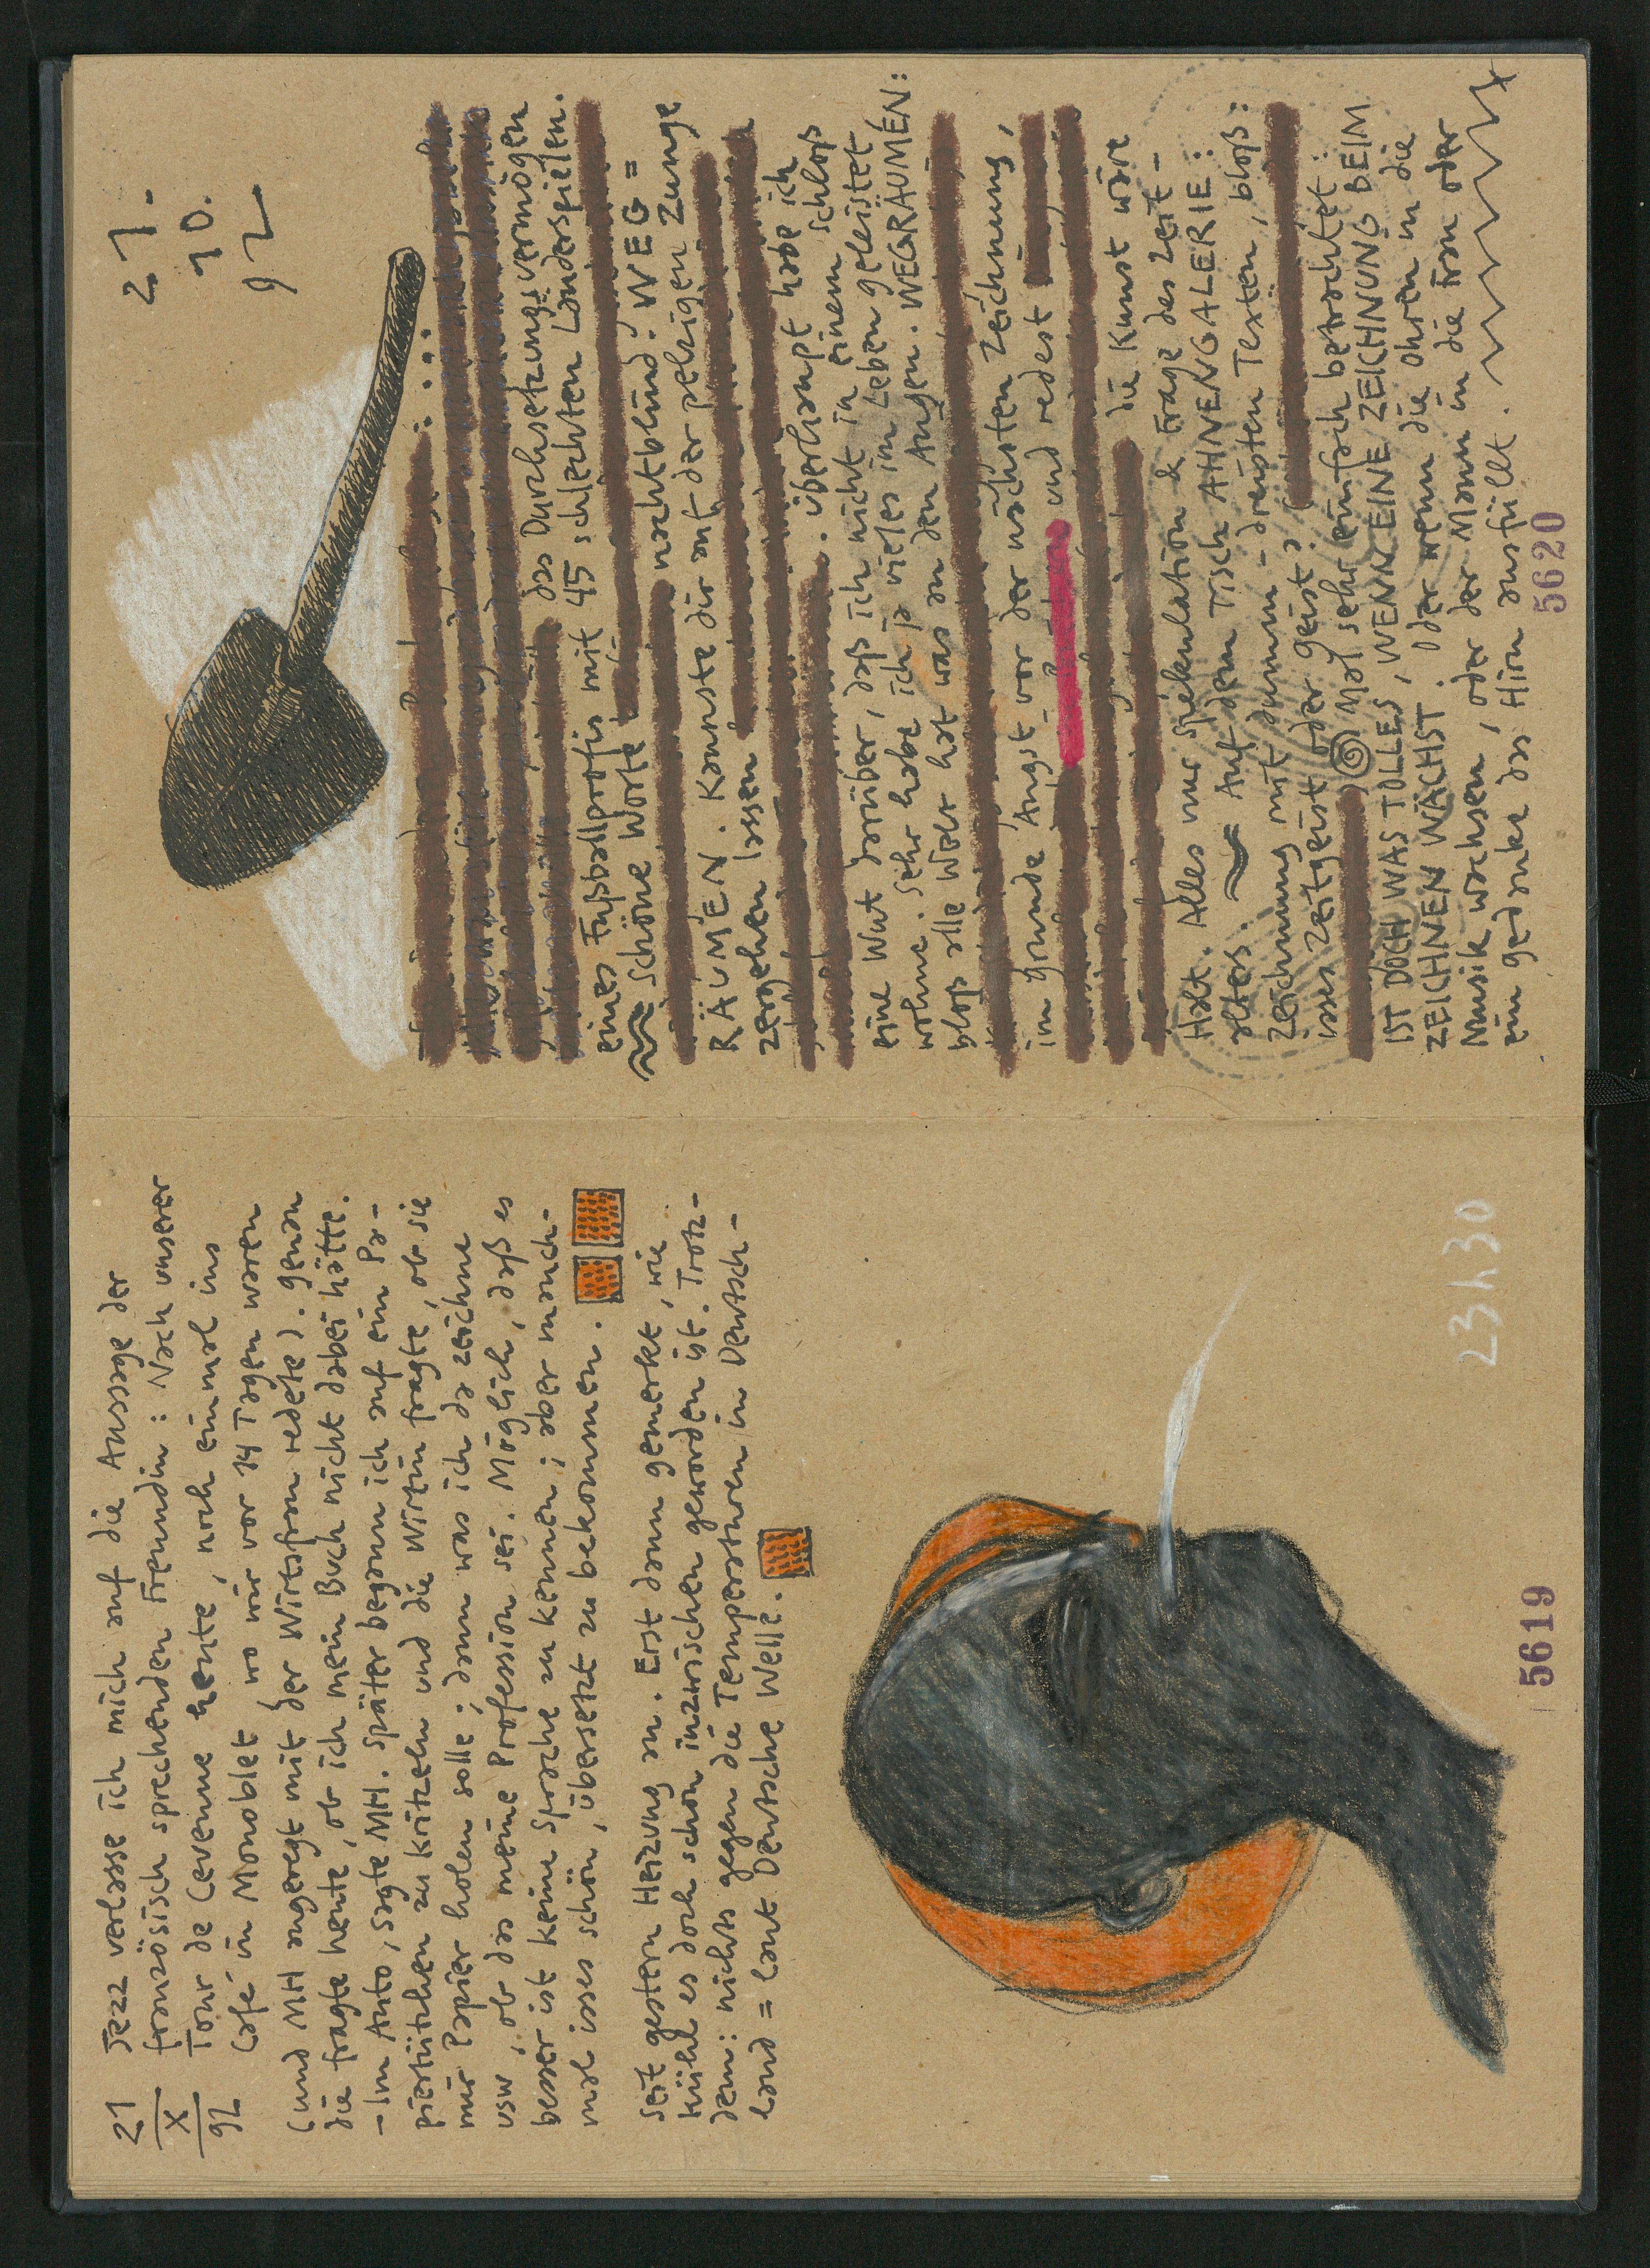 21
X
92
Jezz verlasse ich mich auf die Aussage der
französisch sprechenden Freundin: Nach unserer
Tour de Cevenne heute, noch einmal ins
Café in Monoblet wo wir vor 14 Tagen waren
(und MH angeregt mit der Wirtsfrau redete). genau
die fragte heute, ob ich mein Buch nicht dabei hätte.
- Im Auto, sagte MH. Später begann ich auf ein Pa-
piertütchen zu kritzeln und die Wirtin fragte, ob sie
mir Papier holen solle; dann was ich da zeichne
usw, ob das meine Profession sei. Möglich, daß es
besser ist keine Sprache zu kennen; aber manch-
mal isses schön, übersetzt zu bekommen.
Seit gestern Heizung an. Erst dann gemerkt, wie
kühl es doch schon inzwischen geworden ist. Trotz-
dem: nichts gegen die Temperaturen in Deutsch-
land = laut Deutsche Welle.
23h30
5619
21.
10.
92
das Durchsetzungsvermögen
eines Fußballprofis mit 45 schlechten Länderspielen.
Schöne Worte nachtblind: WEG =
RÄUMEN. Kannste dir auf der pelzigen Zunge
zergehen lassen
. überhaupt habe ich
eine Wut darüber, daß ich nicht in einem Schloß
wohne. Sehr habe ich ja vieles im Leben geleistet
bloß alle Welt hat was an den Augen. WEGRÄUMEN:
im Grunde Angst vor der nächsten Zeichnung,
und redest
die Kunst wäre
Halt. Alles nur Spekulation & Frage des Zeit-
alters. Auf dem Tisch AHNENGALERIE:
Zeichnung mit dumm-dreisten Texten, bloß:
isses Zeitgeist oder geist?
Mal sehr einfach betrachtet:
IST DOCH WAS TOLLES, WENN EINE ZEICHNUNG BEIM
ZEICHNEN WÄCHST. Oder wenn die Ohren in die
Musik wachsen, oder der Mann in die Frau oder
ein gedanke das Hirn ausfüllt.
5620